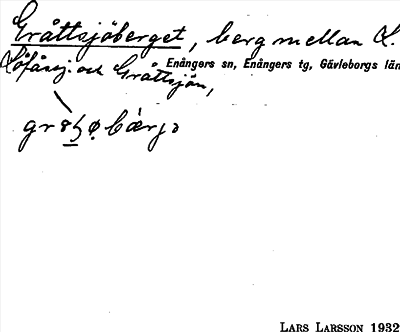 Gråttsjöberget, berg mellan L.
Löfåssj. och Gråttsjön,
Enångers sn, Enångers tg, Gävleborgs län
LARS LARSSON 1932